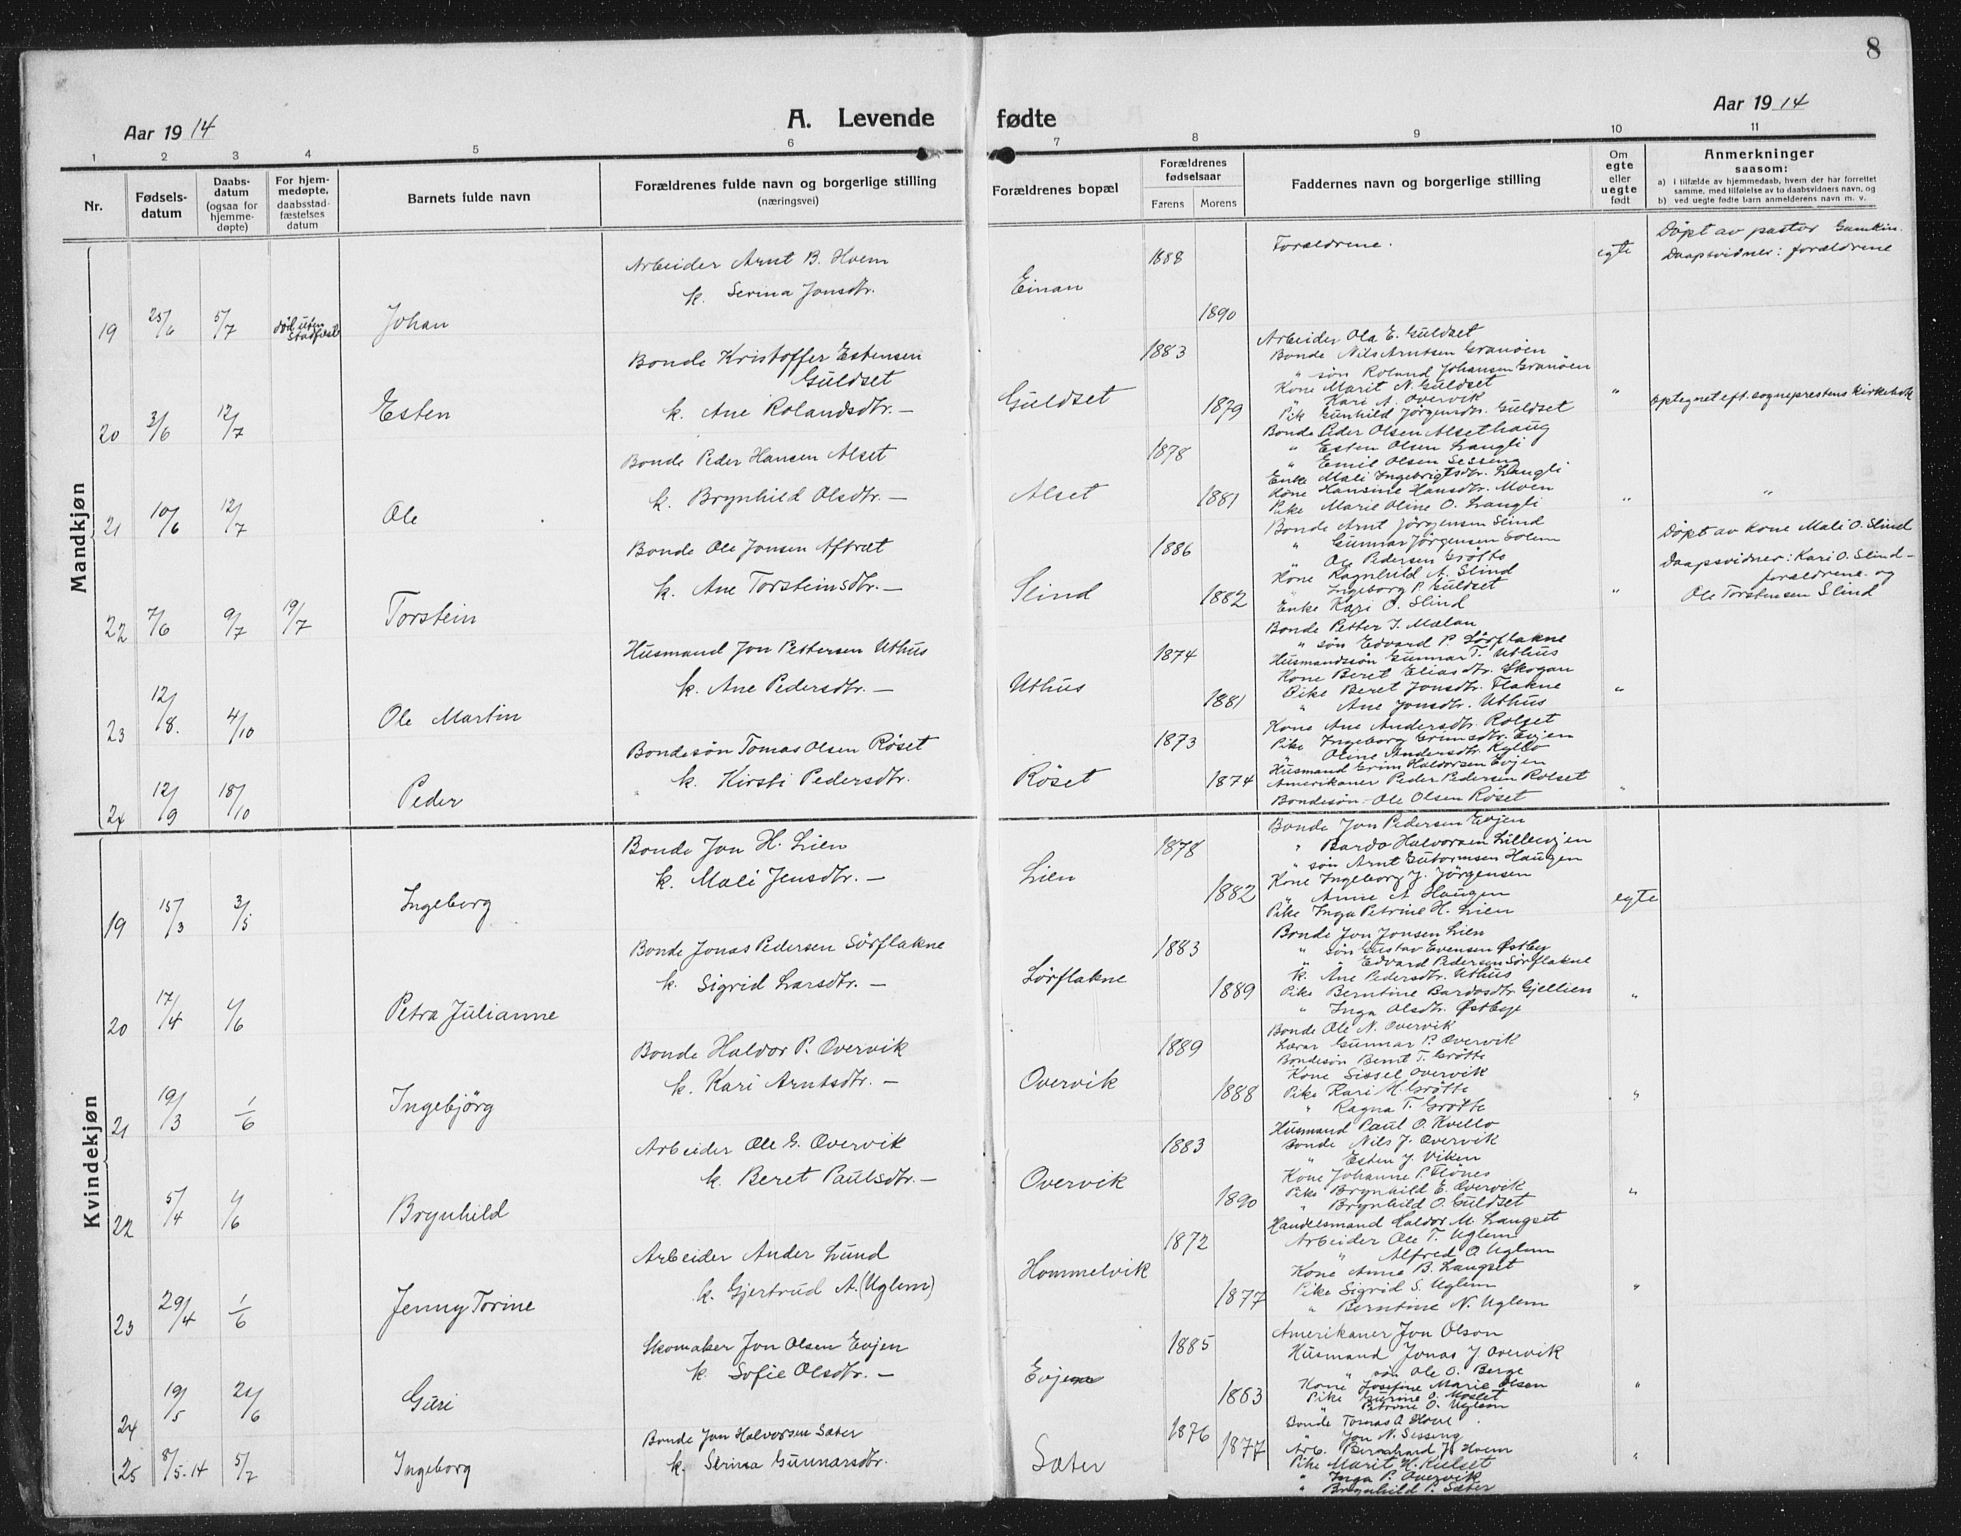 8
Aar 1914
A. Levende fødte
Aar 1914
1 2 3 4 5 6 7 8 9 10 11
Nr.
Fødsels-
datum
Daabs-
datum
(ogsaa for
hjemme-
døpte)
For hjem-
medøpte,
daabsstad-
fæstelses
datum
Barnets fulde navn
Forældrenes fulde navn og borgerlige stilling
(næringsvei)
Forældrenes bopæl
Forældrenes
fødselsaar
Farens. Morens.
Faddernes navn og borgerlige stilling
Om
egte
eller
uegte
født
Anmerkninger
saasom:
a) i tilfælde av hjemmedaab, hvem der har forrettet
samme, med tilføielse av to daabsvidners navn, og
b) ved uegte fødte barn anmelderens navn m. v.
Mandkjøn
19 25/6 5/7 død uten stadfæst. Johan
Arbeider Arnt B. Hoem
k. Serina Jonsdtr.
Einan 1888 1890
Forældrene.
egte
Døpt av pastor
Daapsvidner: forældrene
20 3/6 12/7 Esten
Bonde Kristoffer Estensen
Guldset
k. Ane Rolandsdtr. —
Guldset 1883 1879
Arbeider Ola E. Guldset
Bonde Nils Arntsen Granøien
" søn Roland Johansen Granøien
Kone Marit N. Guldset
" Kari A. Overvik
Pike Gunhild Jörgensdtr. Guldset
"
optegnet eft. sogneprestens kirkebok
21 10/6 12/7 Ole
Bonde Peder Hansen Alset
k. Brynhild Olsdtr. —
Alset 1878 1881
Bonde Peder Olsen Alsethaug
" Esten Olsen Langli
" Emil Olsen Sesseng
Enke Mali Ingebrigtsdtr. Langli
Kone Hansine Hansdtr. Moen
Pike Marie Oline O. Langli
" "
22 7/6 9/7 19/7 Torstein
Bonde Ole Jonsen Aftret
k. Ane Torsteinsdtr. —
Slind 1886 1882
Bonde Arnt Jörgensen Slind
" Gunnar Jörgensen Solem
" Ole Pedersen Grøtte
Kone Ragnhild A. Slind
" Ingeborg P. Guldset
Enke Kari O. Slind
"
Døpt av Kone Mali O. Slind
Daapsvidner: Kari O. Slind -
forældrene og
Ole Torstensen Slind
23 12/8. 4/10 Ole Martin
Husmand Jon Pettersen Uthus
k. Ane Pedersdtr. —
Uthus 1874 1881
Bonde Petter J. Mælan
" søn Edvard P. Sørflakne
Husmandssøn Gunnar T. Uthus
Kone Beret Eliasdtr. Skogan
Pike Beret Jonsdtr. Flakne
" Ane Jonsdtr. Uthus
"
24 12/9 18/10 Peder
Bondesøn Tomas Olsen Røset
k. Kirsti Pedersdtr.
Røset 1873 1874
Kone Ane Andersdtr. Rolset
Pike Ingeborg Grimsdtr. Evjen
" Oline Andersdtr. Kyllo
Husmand Grim Haldorsen Evjen
Amerikaner Peder Pedersen Rolset
Bondesøn Ole Olsen Røset
"
Kvindekjøn
19 15/3 3/5 Ingeborg
Bonde Jon H. Lien
k. Mali Jensdtr. —
Lien 1878 1882
Bonde Jon Pedersen Evjen
" Bardo Halvorsen Lillevjen
" søn Arnt Guttormsen Haugen
Kone Ingeborg J. Jörgensen
" Anne A Haugen
Pike Inga Petrine H. Lien
egte
20 17/4 1/6 Petra Julianne
Bonde Jonas Pedersen Sørflakne
k. Sigrid Larsdtr. —
Sørflakne 1883 1889
Bonde Jon Jonsen Lien
" søn Gustav Evensen Østby
" " Edvard Pedersen Sørflakne
k. Ane Pedersdtr. Uthus
Pike Berntine Bardosdtr. Gjellien
" Inga Olsdtr. Østbye
"
21 19/3 1/6 Ingebjörg
Bonde Haldor P. Overvik
k. Kari Arntsdtr. —
Overvik 1889 1888
Bonde Ole N. Overvik
Lærer Gunnar P. Overvik
Bondesøn Bernt T. Grøtte
Kone Sissel Overvik
Pike Kari M. Grøtte
" Ragna T. Grøtte
"
22 5/4 1/6 Brynhild
Arbeider Ole G. Overvik
k. Beret Paulsdtr. —
Overvik 1883 1890
Husmand Paul O. Kvello
Bonde Nils J. Overvik
" Esten J. Viken
Kone Johanne P. Flønes
Pike Brynhild E. Overvik
" Brynhild O. Guldset
"
23 29/4 1/6 Jenny Torine
Arbeider Ander Lund
k. Gjertrud A. (Uglem)
Hommelvik 1872 1877
Handelsmand Haldor M. Langset
Arbeider Ole T. Uglem
" Alfred O Uglem
Kone Anne B. Langset
Pike Sigrid S. Uglem
" Berntine N. Uglem
"
24 19/5 21/6 Guri
Skomaker Jon Olsen Evjen
k. Sofie Olsdtr. —
Evjen 1885 1883
Amerikaner Jon Olson
Husmand Jonas J. Overvik
" søn Ole O. Berge
Kone Josefine Marie Olsen
Pike Gurine O. Moslet
" Petrine O. Uglem
"
25 8/5-14 5/7 Ingeborg
Bonde Jon Halvorsen Sæter
k. Serina Gunnarsdtr.
Sæter 1876 1877
Bonde Tomas A. Hove
" Jon N. Sesseng
Arb. Bernhard J. Hoem
Pike Marit H. Kulset
" Inga P. Overvik
" Brynhild P. Sæter
"